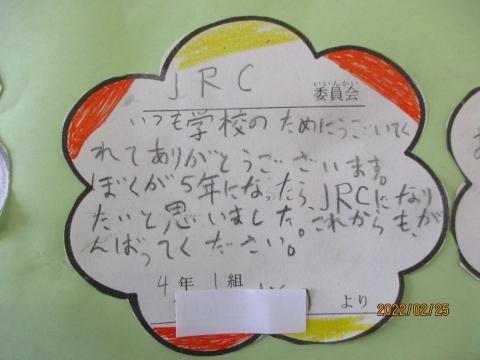 JRC 委員会
いつも学校のためにうごいてく
れてありがとうございます。
ぼくが5年になったら、JRCになり
たいと思いました。これからも、が
んばってください。
4年1組
より
2022/02/25